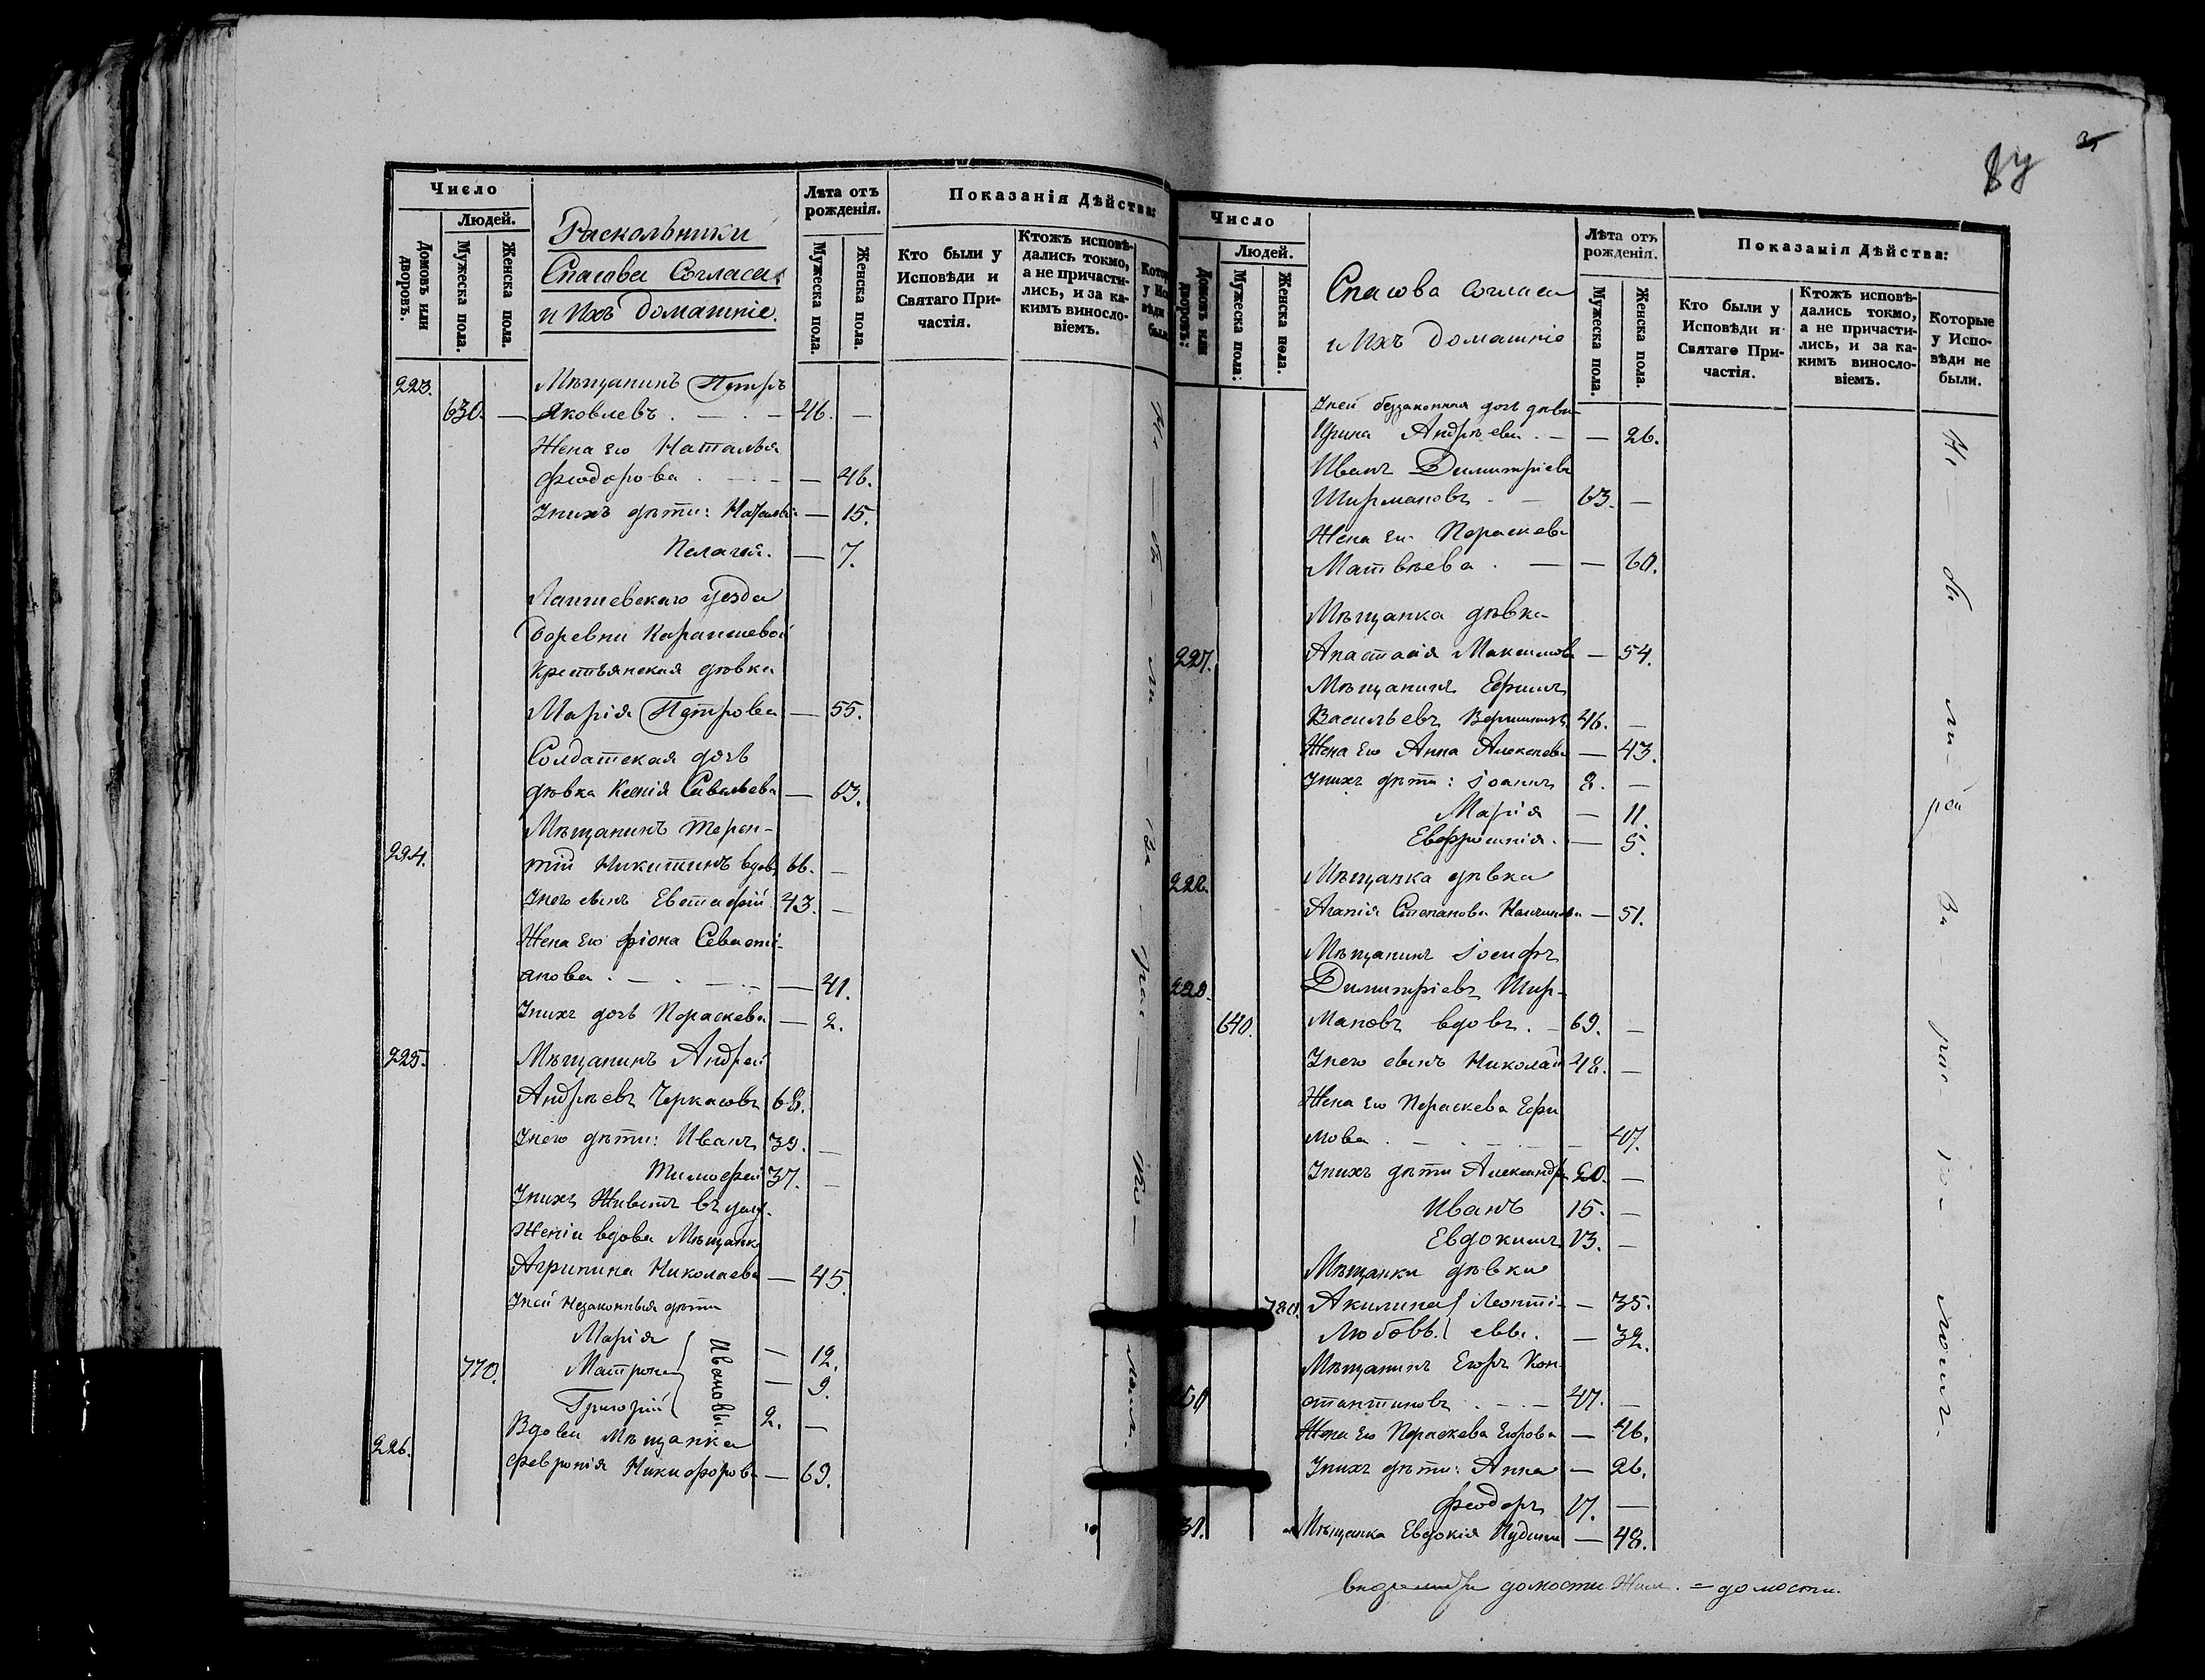 Число
Людей.
Домовъ или дворовъ.
Мужеска пола.
Женска пола.
Раскольники
Спасова Согласія
и ихъ домашніе.
Лѣта отъ рожденія.
Мужеска пола.
Женска пола.
Показанія Дѣйства:
Кто были у Исповѣди и Святаго Причастія.
Ктожъ исповѣдались токмо, а не причастились, и за какимъ винословіемъ.
223.
Мѣщанинъ Петръ
630. — Яковлевъ . — . — 46. —
Жена его Наталья
Феодорова . — . — — 46.
У нихъ дѣти: Наталья — 15.
Пелагея. — 7.
Лаишевскаго уезда
Деревни
Крестьянская дѣвка
Марія Петрова — 55.
Солдатская дочь
дѣвка Ксенія Савельева — 63.
Мѣщанинъ Терен-
224. тій Никитинъ вдов. 66. —
У него сынъ Евстафій 43. —
Жена его Фіона Севасті-
анова . — . — — 41.
У нихъ дочь Параскева — 2.
225. Мѣщанинъ Андрей
Андрѣевъ Черкасовъ 68.
У него дѣти: Иванъ 39. —
Тимофей 37. —
У нихъ Живетъ въ услу-
женіи вдова Мѣщанка
Агрипина Николаева — 45.
У ней Незаконныя дѣти
Марія — 12.
770. Матрона — 9.
Григорій 2. —
Ивановы.
Вдова Мѣщанка
226. Февронія Никифорова — 69.
Не бы ли за рас ко лом.
Число
Людей.
Домовъ или дворовъ.
Мужеска пола.
Женска пола.
Спасова согласія
и Ихъ домашніе
Лѣта отъ рожденія.
Мужеска пола.
Женска пола.
Показанія Дѣйства:
Кто были у Исповѣди и Святаго Причастія.
Ктожъ исповѣдались токмо, а не причастились, и за какимъ винословіемъ.
Которые у Исповѣди не были.
У ней беззаконная дочь дѣвк.
Ирина Андрѣева . — — 26.
Иванъ Димитріевъ
Ширмановъ . — 63. —
Жена его Параскева
Матвѣева . — — 60.
Мѣщанка дѣвка
227. Анастасія Максимова — 54.
Мѣщанинъ Ефимъ
Васильевъ 46. —
Жена его Анна Алексеева — 43.
У нихъ дѣти: Іоаннъ 8. —
Марія — 11.
Евфросинія. — 5.
228. Мѣщанка дѣвка
Агапія Степанова — 51.
Мѣщанинъ Іосифъ
229. Димитріевъ Шир-
640. мановъ вдовъ. — 69. —
У него сынъ Николай 48. —
Жена его Параскева Ефи
мова . — . — . — — 47.
У нихъ дѣти Александръ 20. —
Иванъ 15. —
Евдокимъ 13. —
Мѣщанки дѣвки
780. Акилина Леонті- — 35.
Любовь. евы. — 32.
Мѣщанинъ Егоръ Кон-
стантиновъ . — . — 47. —
Жена его Параскева Егорова — 46.
У нихъ дѣти: Анна — 26.
Феодоръ 17. —
31. Мѣщанка Евдокія — 48.
Не бы ли за рас ко лом.